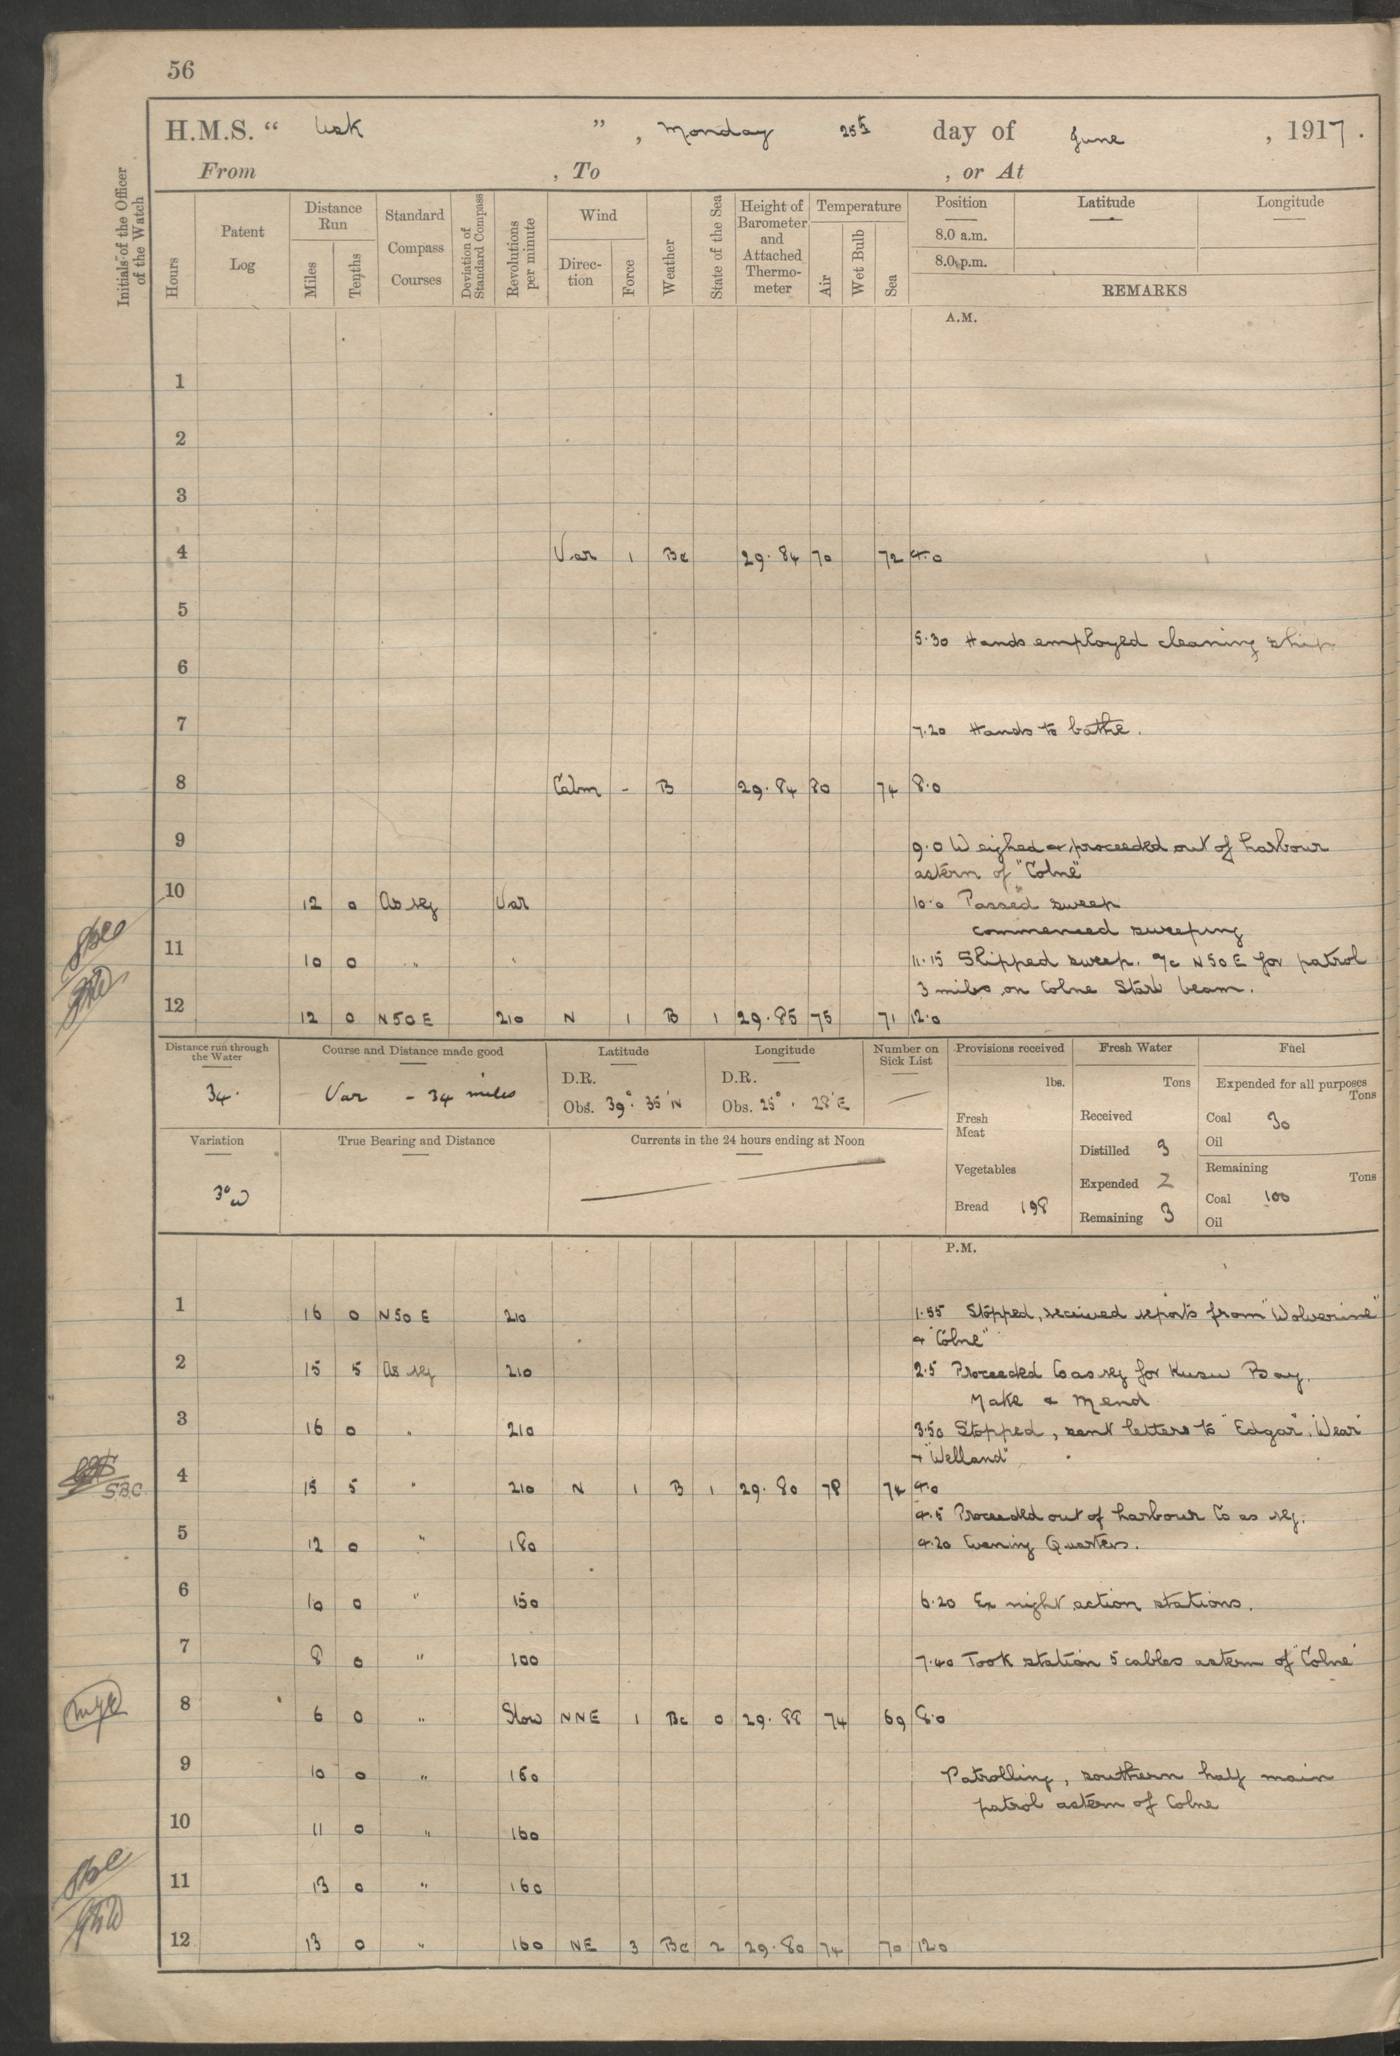 56
H.M.S. “ Usk ” , Monday 25th day of June , 1917 .
From , To , or At
Initials of the Officer of the Watch
Hours
Patent Log
Distance Run
Miles
Tenths
Standard Compass Courses
Deviation of Standard Compass
Revolutions per minute
Wind
Direction
Force
Weather
State of the Sea
Height of Barometer and Attached Thermometer
Temperature
Air
Wet Bulb
Sea
Position
Latitude
Longitude
8.0 a.m.
8.0 p.m.
REMARKS
A.M.
1
2
3
4 Var 1 Bc 29.84 70 72 4.0
5
5.30 Hands employed cleaning ship
6
7
7.20 Hands to bathe.
8 Calm - B 29.84 80 74 8.0
9
9.0 Weighed & proceeded out of harbour
astern of "Colne"
10 12 0 As req Var 10.0 Passed sweep
commenced sweeping
11 10 0 " " 11.15 Shipped sweep. a/c N50E for patrol
3 miles on Colne Starb beam.
12 12 0 N50E 210 N 1 B 1 29.85 75 71 12.0
Distance run through the Water
34.
Course and Distance made good
Var - 34 miles
Latitude
D.R.
Obs. 39° 35' N
Longitude
D.R.
Obs. 25° . 28' E
Number on Sick List
—
Provisions received
lbs.
Fresh Meat
Vegetables
Bread 198
Fresh Water
Tons
Received
Distilled 3
Expended 2
Remaining 3
Fuel
Expended for all purposes
Tons
Coal 30
Oil
Remaining
Tons
Coal 100
Oil
Variation
3°W
True Bearing and Distance
Currents in the 24 hours ending at Noon
P.M.
1 16 0 N50E 210 1.55 Stopped, received reports from "Wolverine"
& "Colne"
2 15 5 As req 210 2.5 Proceeded Co as req for Kusu Bay.
Make & Mend
3 16 0 " 210 3.50 Stopped, sent letters to "Edgar", "Wear"
+ "Welland"
4 15 5 " 210 N 1 B 1 29.80 78 74 4.0
S.B.C.
4.5 Proceeded out of harbour Co as req.
5 12 0 " 180 4.20 Evening Quarters.
6 10 0 " 150 6.20 Ex night action stations.
7 8 0 " 100 7.40 Took station 5 cables astern of "Colne"
8 6 0 " Slow NNE 1 Bc 0 29.88 74 69 8.0
9 10 0 " 160 Patrolling, southern half main
patrol astern of Colne
10 11 0 " 160
11 13 0 " 160
12 13 0 " 160 NE 3 Bc 2 29.80 74 70 12.0